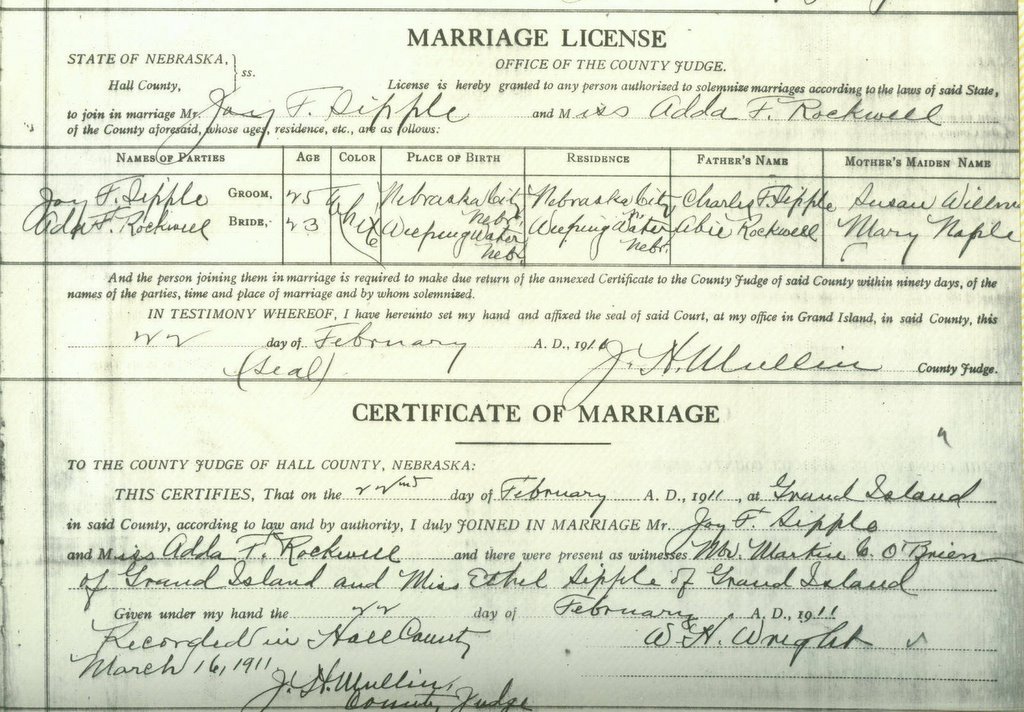 MARRIAGE LICENSE
STATE OF NEBRASKA, } ss.
OFFICE OF THE COUNTY JUDGE.
Hall County,
License is hereby granted to any person authorized to solemnize marriages according to the laws of said State,
to join in marriage Mr. Joy F. Sipple and Miss Adda F. Rockwell
of the County aforesaid, whose ages, residence, etc., are as follows:
NAMES OF PARTIES AGE COLOR PLACE OF BIRTH RESIDENCE FATHER'S NAME MOTHER'S MAIDEN NAME
Joy F. Sipple GROOM, 25 White Nebraska City Nebr. Nebraska City Nebr. Charles F. Sipple Susan
Adda F. Rockwell BRIDE, 23 Weeping Water Nebr. Weeping Water Nebr. Abie Rockwell Mary Naple
And the person joining them in marriage is required to make due return of the annexed Certificate to the County Judge of said County within ninety days, of the
names of the parties, time and place of marriage and by whom solemnized.
IN TESTIMONY WHEREOF, I have hereunto set my hand and affixed the seal of said Court, at my office in Grand Island, in said County, this
22 day of February A. D., 1911
(Seal) J. H. Mullin County Judge.
CERTIFICATE OF MARRIAGE
TO THE COUNTY JUDGE OF HALL COUNTY, NEBRASKA:
THIS CERTIFIES, That on the 22nd day of February A. D., 1911, at Grand Island
in said County, according to law and by authority, I duly JOINED IN MARRIAGE Mr. Joy F. Sipple
and Miss Adda F. Rockwell and there were present as witnesses Mr. Martin C. O'Brien
of Grand Island and Miss Ethel Sipple of Grand Island
Given under my hand the 22 day of February A. D., 1911
Recorded in Hall County W. H. Wright
March 16, 1911
J. H. Mullin,
County Judge